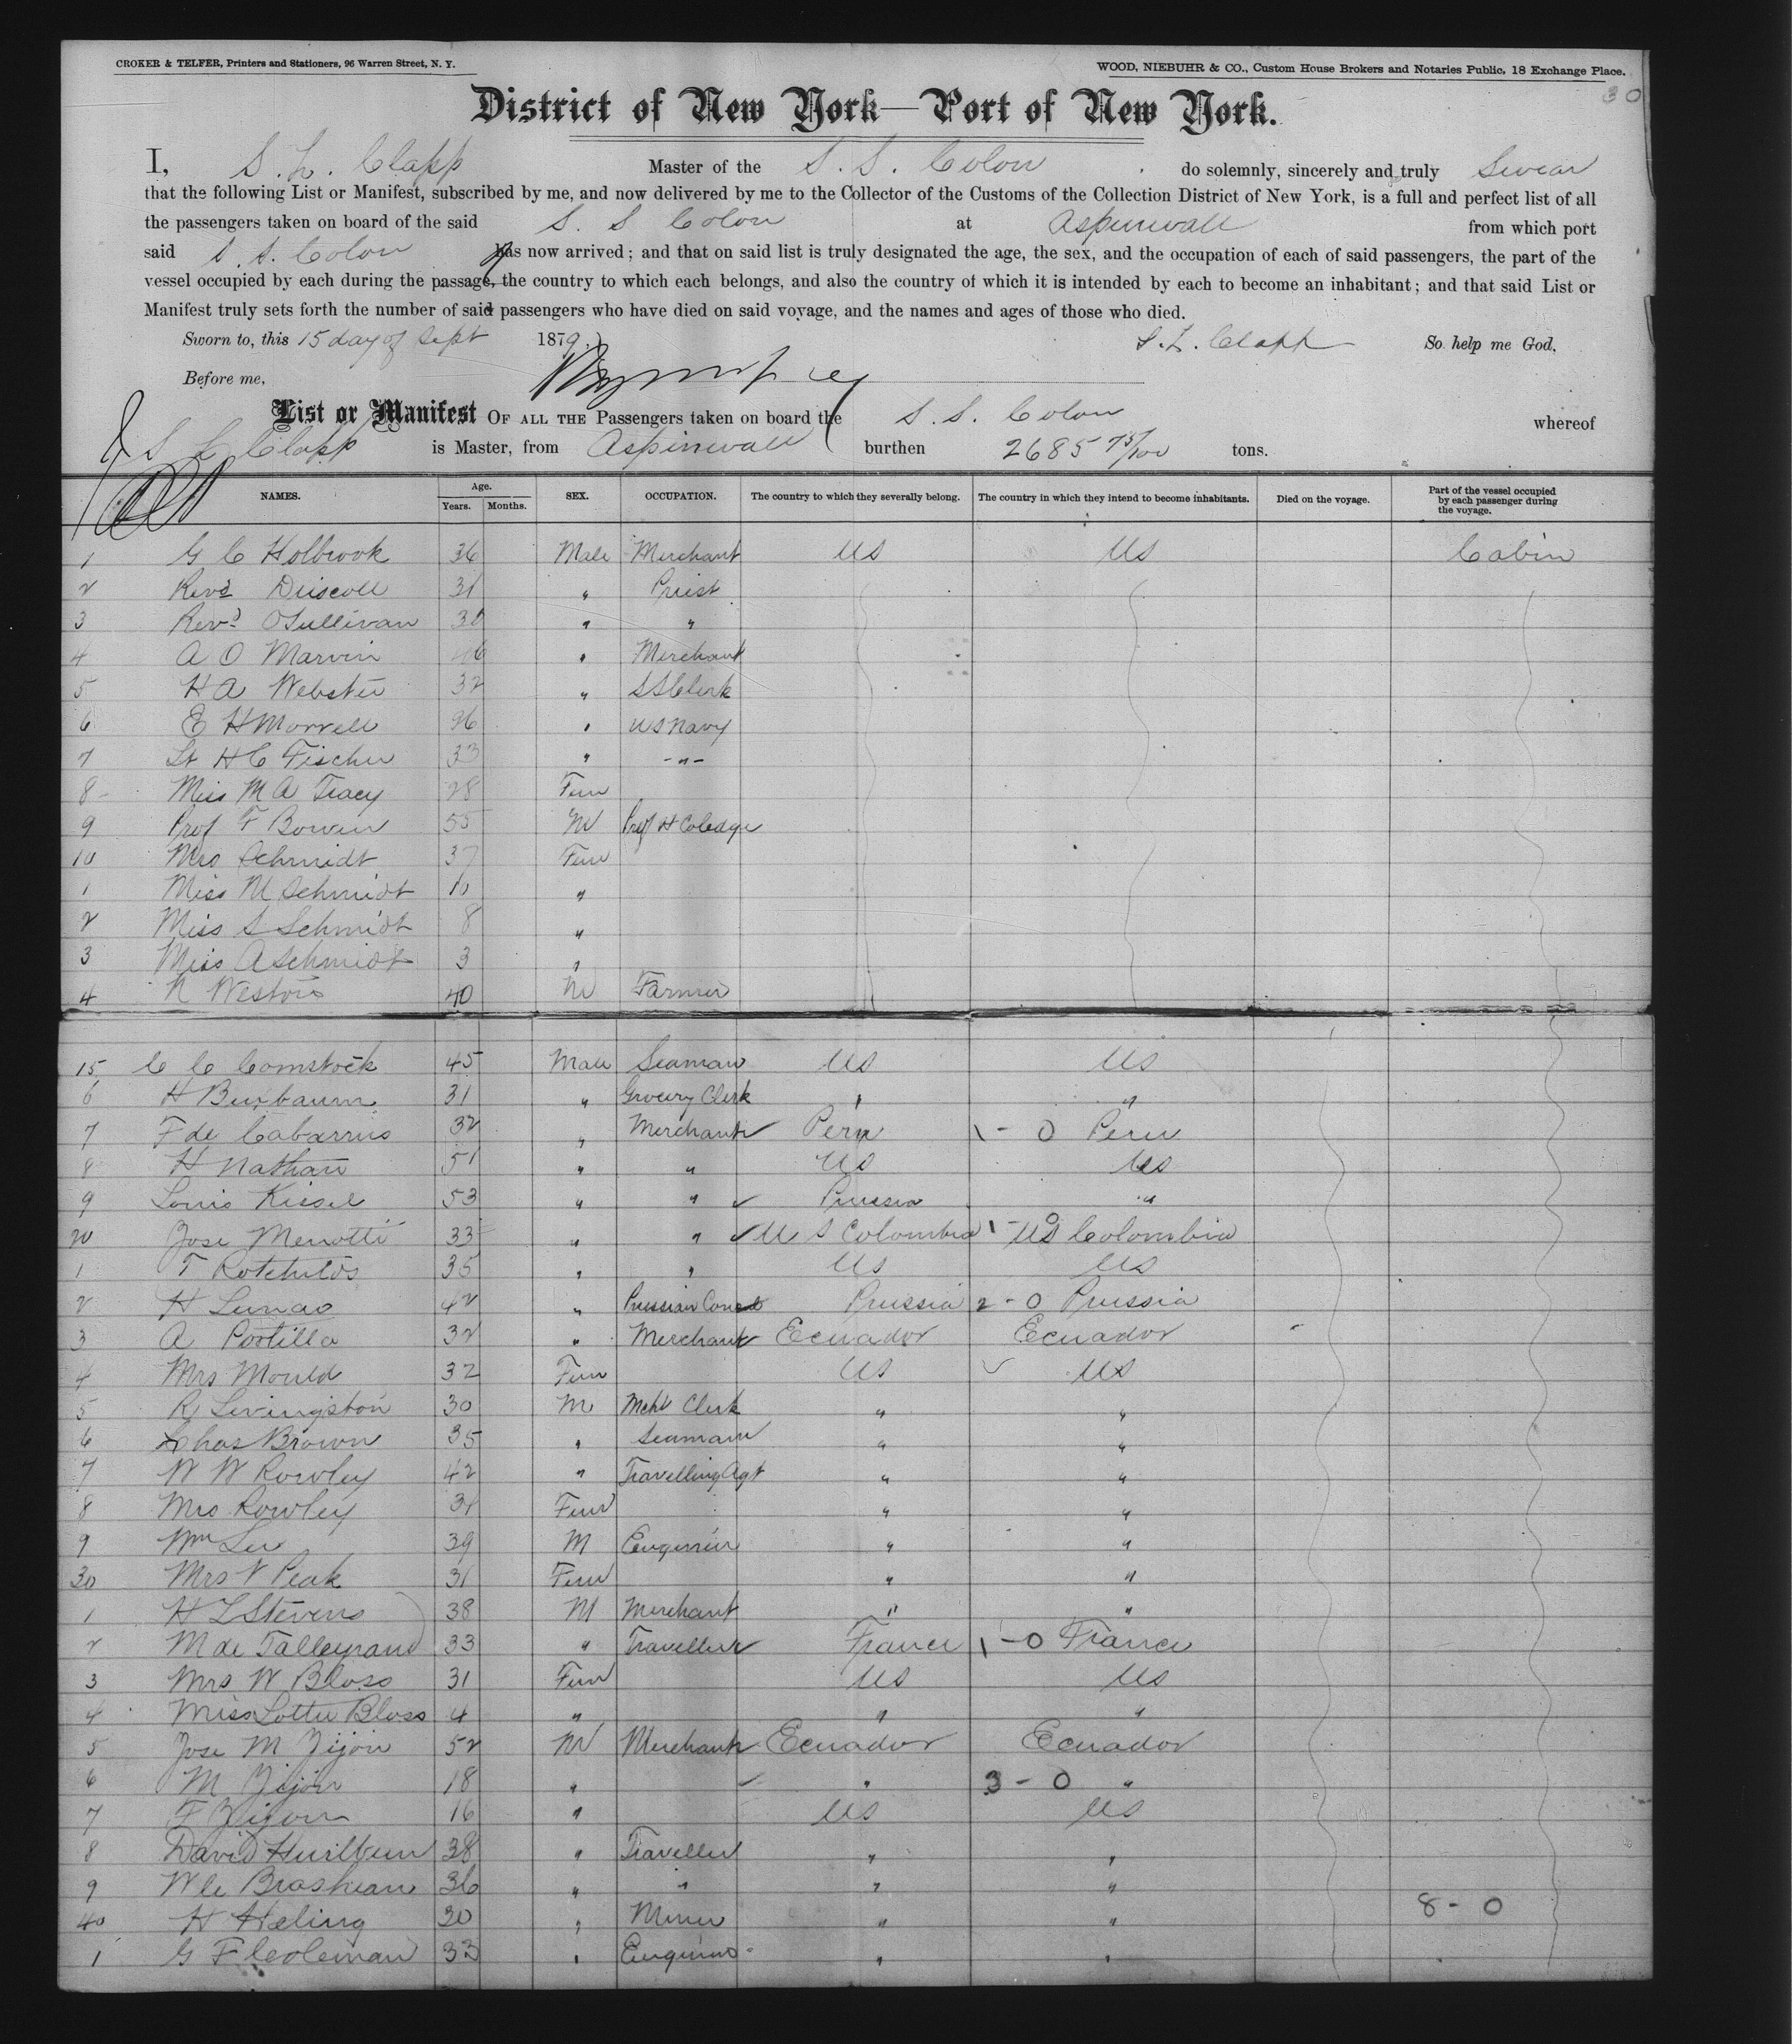 CROKER & TELFER, Printers and Stationers, 96 Warren Street, N. Y.
WOOD, NIEBUHR & CO., Custom House Brokers and Notaries Public, 18 Exchange Place.
30
District of New York—Port of New York.
I, S. L. Clapp Master of the S. S. Colon do solemnly, sincerely and truly Swear
that the following List or Manifest, subscribed by me, and now delivered by me to the Collector of the Customs of the Collection District of New York, is a full and perfect list of all
the passengers taken on board of the said S. S Colon at Aspinwall from which port
said S. S. Colon has now arrived; and that on said list is truly designated the age, the sex, and the occupation of each of said passengers, the part of the
vessel occupied by each during the passage, the country to which each belongs, and also the country of which it is intended by each to become an inhabitant; and that said List or
Manifest truly sets forth the number of said passengers who have died on said voyage, and the names and ages of those who died.
Sworn to, this 15 day of Sept 1879. S. L. Clapp So help me God,
Before me,
List or Manifest OF ALL THE Passengers taken on board the S. S. Colon whereof
S L Clapp is Master, from Aspinwall burthen 2685 75/100 tons.
NAMES. Age. Years. Months. SEX. OCCUPATION. The country to which they severally belong. The country in which they intend to become inhabitants. Died on the voyage. Part of the vessel occupied by each passenger during the voyage.
1 G C Holbrook 36 Male Merchant US US Cabin
2 Revd Driscoll 31 " Priest
3 Revd OSullivan 30 " "
4 A O Marvin 46 " Merchant
5 H A Webster 32 " S S Clerk
6 E H Morrell 26 " U S Navy
7 Lt H C Fischer 33 " -"-
8 Miss M A Tracy 28 Fem
9 Prof F Bowen 55 M Prof H Coledge
10 Mrs Schmidt 37 Fem
1 Miss M Schmidt 10 "
2 Miss S Schmidt 8 "
3 Miss A Schmidt 3 "
4 N Weston 40 M Farmer
15 C C Comstock 45 Male Seaman US US
6 H Buxbaum 31 " Grocery Clerk " "
7 F de Cabarrus 32 " Merchant Peru 1 - 0 Peru
8 H Nathan 51 " " US US
9 Louis Kiesel 53 " " Prussia "
20 Jose Menotti 33 " " U S Colombia 1 - 0 US Colombia
1 T Rotchilds 35 " " US US
2 H Lunao 42 " Prussian Consul Prussia 2 - 0 Prussia
3 A Portilla 32 " Merchant Ecuador Ecuador
4 Mrs Mould 32 Fem US US
5 R Livingston 30 M Mcht Clerk " "
6 Chas Brown 35 " Seaman " "
7 W W Rowley 42 " Travelling Agt " "
8 Mrs Rowley 31 Fem " "
9 Wm Lee 39 M Engineer " "
30 Mrs V Peak 31 Fem " "
1 H L Stevens 38 M Merchant " "
2 M de Talleyrand 33 " Traveller France 1 - 0 France
3 Mrs W Bloss 31 Fem US US
4 Miss Lottie Bloss 4 " " "
5 Jose M Jijon 52 M Merchant Ecuador Ecuador
6 M Jijon 18 " " 3 - 0 "
7 F Jijon 16 " US US
8 David 38 " Traveller " "
9 W 36 " " " "
40 H Heling 30 " Miner " " 8 - 0
1 G F Coleman 33 " Engineer " "